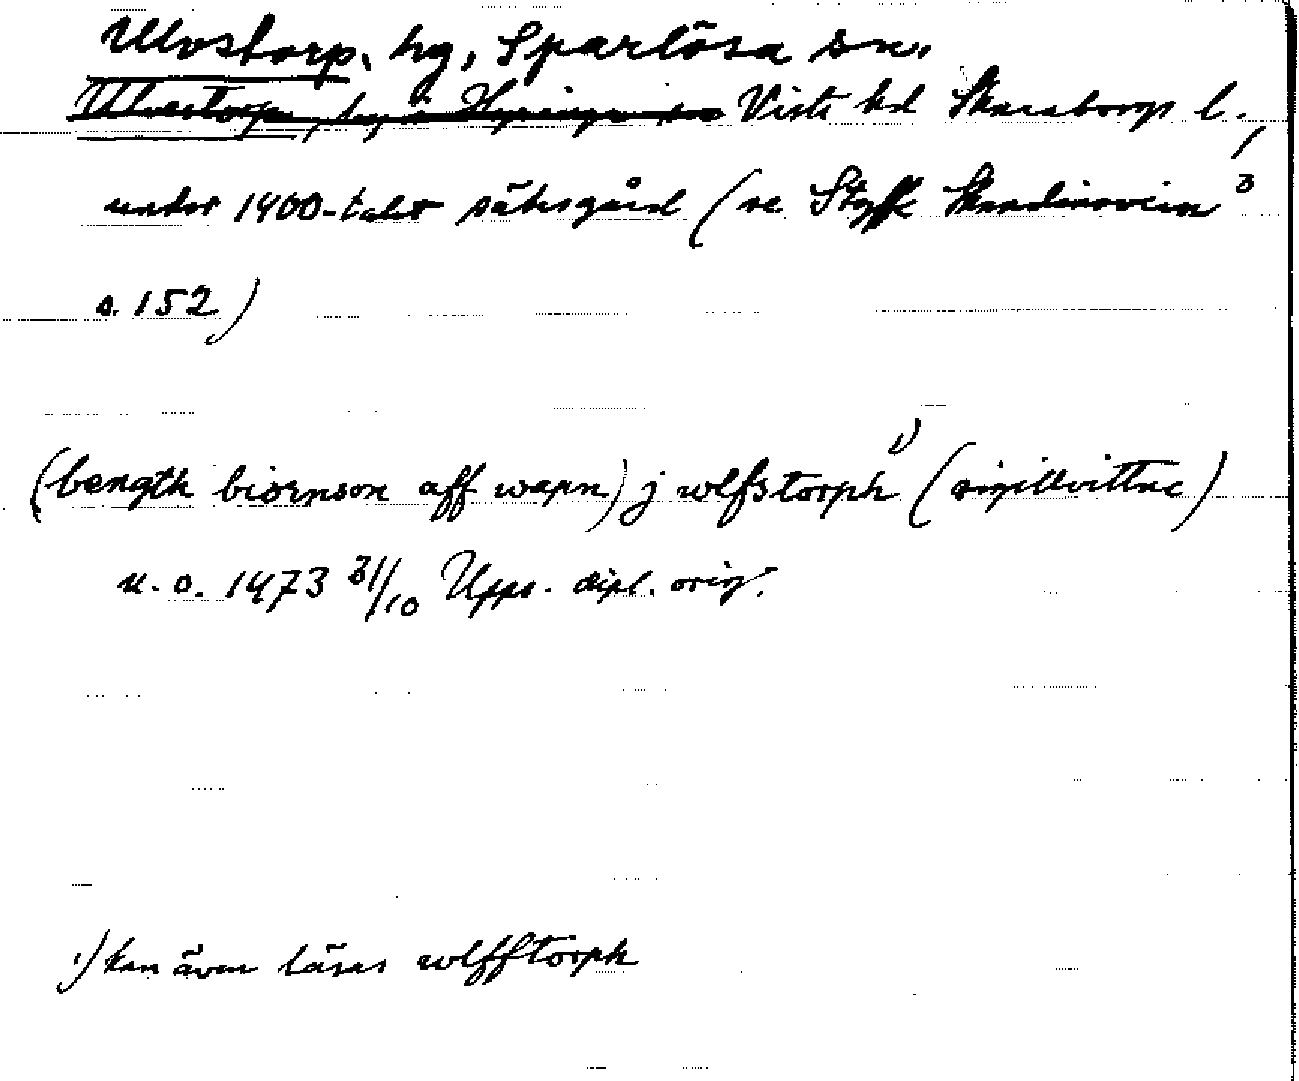 Ulvstorp, hg, Sparlösa sn.
Ulvestorp, hg i Hyringa sn Viste hd Skaraborgs l.,
under 1400-talet sätesgård (se Styffe Skandinavien³
s. 152)
(bength biørnson aff wapn) j wlfstorph ¹) (sigillvittne)
u. o. 1473 31/10 Upps. dipl. orig.
¹) kan även läsas wlfftorph